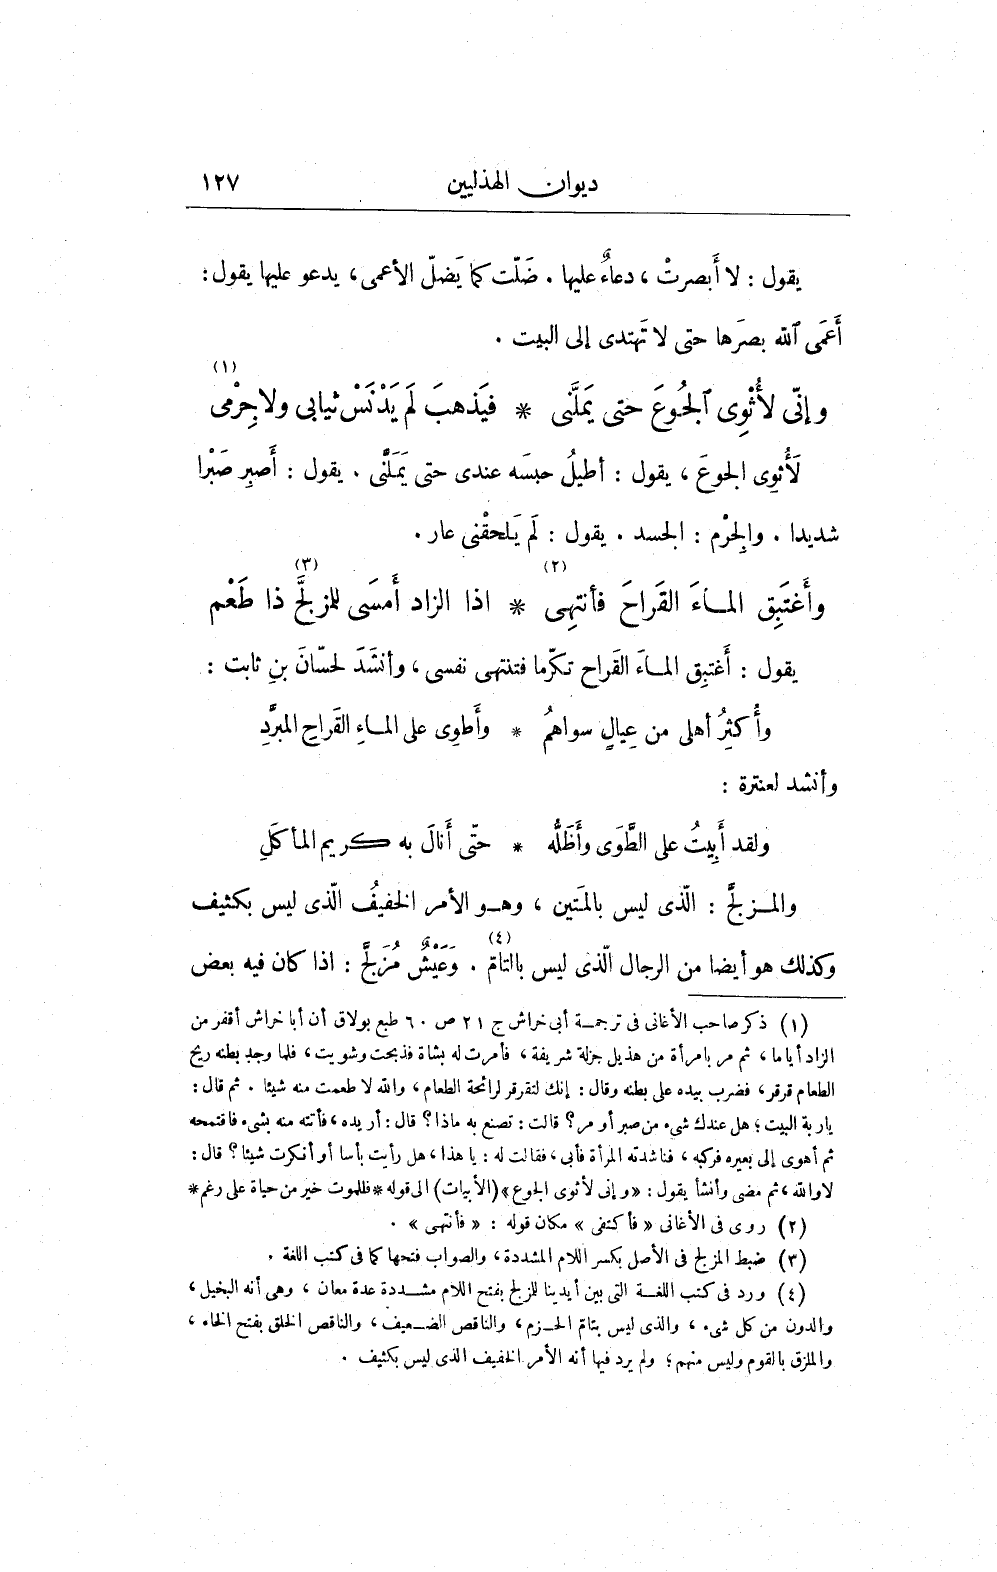 ديوان الهذليين ١٢٧
يقول : لا أَبصرتْ ، دعاءٌ عليها . ضَلّت كما يَضلّ الأعمى ، يدعو عليها يقول :
أَعمَى ٱلله بصرَها حتى لا تَهتدى إلى البيت .
وإنّى لأُثْوِى ٱلجُوعَ حتى يَمَلَّنى * فيَذهبَ لَم يَدْنَسْ ثيابى ولا جِرْمى (١)
لَأُثوِى الجوعَ ، يقول : أطيلُ حبسَه عندى حتى يَمَلَّنى . يقول : أَصبِر صَبْرا
شديدا . والجِرْم : الجسد . يقول : لَم يَلحقْنى عار .
وأَغتَبِق المـاءَ القَراحَ فأَنتهِى (٢) * اذا الزاد أَمسَى للمزلَّج (٣) ذا طَعْم
يقول : أَغتبِق المـاءَ القَراح تكرّما فتنتهى نفسى ، وأنشَدَ لحسّانَ بنِ ثابت :
وأُكثِرُ أهلى من عِيالٍ سواهمُ * وأَطوِى على المـاءِ القَراحِ المبرَّدِ
وأنشد لعنترة :
ولقد أَبِيتُ على الطَّوَى وأَظَلُّه * حتّى أَنالَ به كريم المأكَلِ
والمـزلَّج : الّذى ليس بالمَتين ، وهـو الأمر الخفيفُ الّذى ليس بكثيف
وكذلك هو أيضا من الرجال الّذى ليس بالتامّ (٤) . وَعَيْشٌ مُزَلَّج : اذا كان فيه بعض
(١) ذكر صاحب الأغانى فى ترجمـة أبى خراش ج ٢١ ص ٦٠ طبع بولاق أن أبا خراش أقفر من
الزاد أياما ، ثم مر بامرأة من هذيل جزلة شريفة ، فأمرت له بشاة فذبحت وشويت ، فلما وجد بطنه ريح
الطعام قرقر ، فضرب بيده على بطنه وقال : إنك لتقرقر لرائحة الطعام ، والله لا طعمت منه شيئا . ثم قال :
يا ربة البيت ؛ هل عندك شىء من صبر أو مر ؟ قالت : تصنع به ماذا ؟ قال : أريده ، فأتته منه بشىء فاقتمحه
ثم أهوى إلى بعيره فركبه ، فناشدته المرأة فأبى ، فقالت له : يا هذا ، هل رأيت بأسا أو أنكرت شيئا ؟ قال :
لا والله ، ثم مضى وأنشأ يقول : «وإنى لأثوى الجوع» (الأبيات) الى قوله * فللموت خير من حياة على رغم *
(٢) روى فى الأغانى « فأكتفى » مكان قوله : « فأنتهى » .
(٣) ضبط المزلج فى الأصل بكسر اللام المشددة ، والصواب فتحها كما فى كتب اللغة .
(٤) ورد فى كتب اللغـة التى بين أيدينا للمزلج بفتح اللام مشـددة عدة معان ، وهى أنه البخيل ،
والدون من كل شىء ، والذى ليس بتامّ الحـزم ، والناقص الضـعيف ، والناقص الخلق بفتح الخاء ،
والملزق بالقوم وليس منهم ؛ ولم يرد فيها أنه الأمر الخفيف الذى ليس بكثيف .